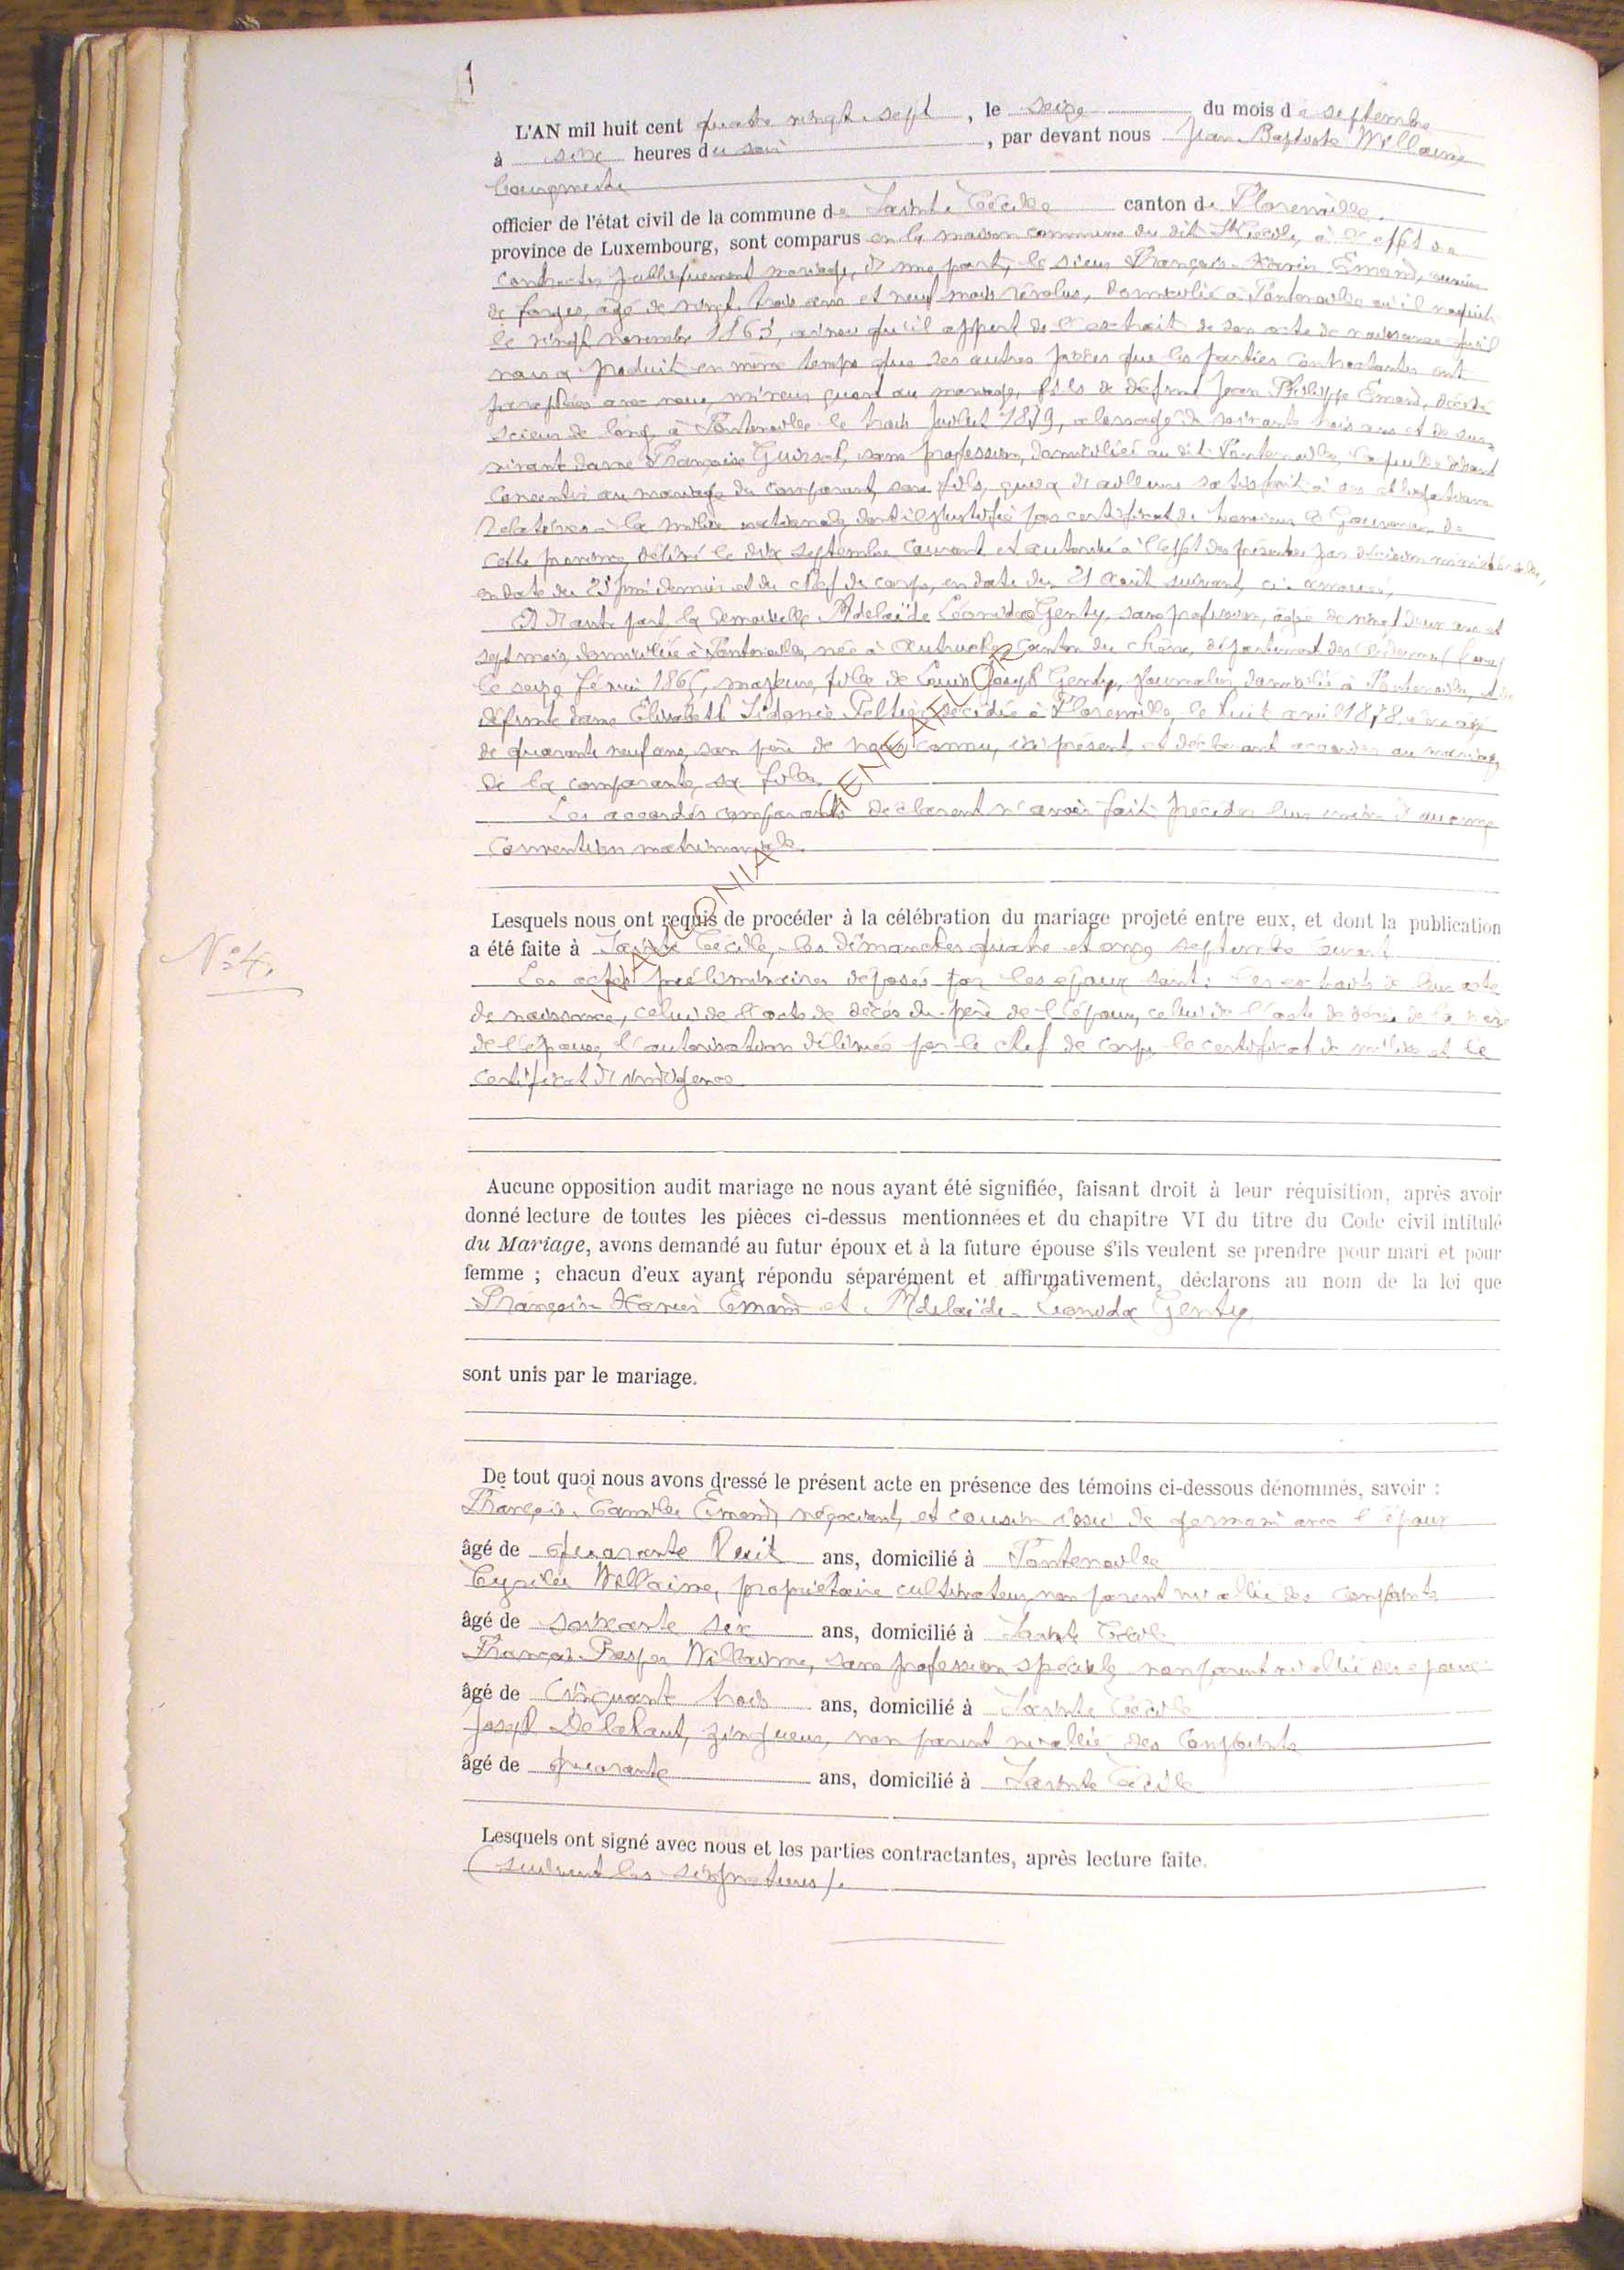 1
L'AN mil huit cent quatre vingt sept, le seize du mois de septembre
à six heures du soir, par devant nous Jean Baptiste Willaime
bourgmestre
officier de l'état civil de la commune de Sainte Cécile canton de Florenville,
province de Luxembourg, sont comparus en la maison commune du dit Ste Cécile, à l'effet de
contracter publiquement mariage, d'une part, le sieur François Xavier Emond, ouvrier
de forges, âgé de vingt trois ans et neuf mois révolus, domicilié à Fontenoille où il naquit
le vingt novembre 1863, ainsi qu'il appert de l'extrait de son acte de naissance qu'il
nous a produit en même temps que les autres pièces que les parties contractantes ont
paraphées avec nous, mineur quant au mariage, fils de défunt Jean Philippe Emond, décédé
scieur de long, à Fontenoille le trois juillet 1879, alors âgé de soixante trois ans et de sur-
vivant dame Françoise Guirsch, sans profession, domiciliée au dit Fontenoille, laquelle disant
consentir au mariage du comparant, son fils, qui a d'ailleurs satisfait à ses obligations
relatives à la milice nationale, dont il justifie par certificat de Monsieur le Gouverneur de
cette province, délivré le dix septembre courant et autorisé à l'effet des présentes par décision ministérielle,
en date du 25 juin dernier et du chef de corps, en date du 21 août suivant, ci-annexé,
Et d'autre part la demoiselle Adelaïde Léonida Genty, sans profession, âgée de vingt deux ans et
sept mois, domiciliée à Fontenoille, née à Autruche, canton du Chêne, département des Ardennes (France)
le seize février 1865, majeure, fille de Louis Joseph Genty, journalier, domicilié à Fontenoille, et de
défunte dame Elisabeth Sidonie Peltier, décédée à Florenville, le huit avril 1878, âgée
de quarante neuf ans, son père de nous connu, ici présent, et déclarant accorder au mariage
de la comparante, sa fille.
Les accordés comparants déclarent n'avoir fait précéder leur union d'aucune
convention matrimoniale.
Lesquels nous ont requis de procéder à la célébration du mariage projeté entre eux, et dont la publication
a été faite à Sainte Cécile, les dimanches quatre et onze septembre courant
Les actes préliminaires déposés par les époux sont: les extraits de leur acte
de naissance, celui de l'acte de décès du père de l'époux, celui de l'acte de décès de la mère
de l'épouse, l'autorisation délivrée par le chef de corps, le certificat de milice et le
certificat d'indigence
N° 4.
Aucune opposition audit mariage ne nous ayant été signifiée, faisant droit à leur réquisition, après avoir
donné lecture de toutes les pièces ci-dessus mentionnées et du chapitre VI du titre du Code civil intitulé
du Mariage, avons demandé au futur époux et à la future épouse s'ils veulent se prendre pour mari et pour
femme ; chacun d'eux ayant répondu séparément et affirmativement, déclarons au nom de la loi que
François Xavier Emond et Adelaïde Léonida Genty
sont unis par le mariage.
De tout quoi nous avons dressé le présent acte en présence des témoins ci-dessous dénommés, savoir :
François Camille Emond, négociant, et cousin issu de germain avec l'époux
âgé de quarante huit ans, domicilié à Fontenoille
Cyrille Willaime, propriétaire cultivateur, non parent ni allié des conjoints
âgé de soixante six ans, domicilié à Sainte Cécile
François Prosper Willaime, sans profession spéciale, non parent ni allié des époux
âgé de cinquante trois ans, domicilié à Sainte Cécile
Joseph Delahaut, zingueur, non parent ni allié des conjoints
âgé de quarante ans, domicilié à Sainte Cécile
Lesquels ont signé avec nous et les parties contractantes, après lecture faite.
(suivent les signatures).